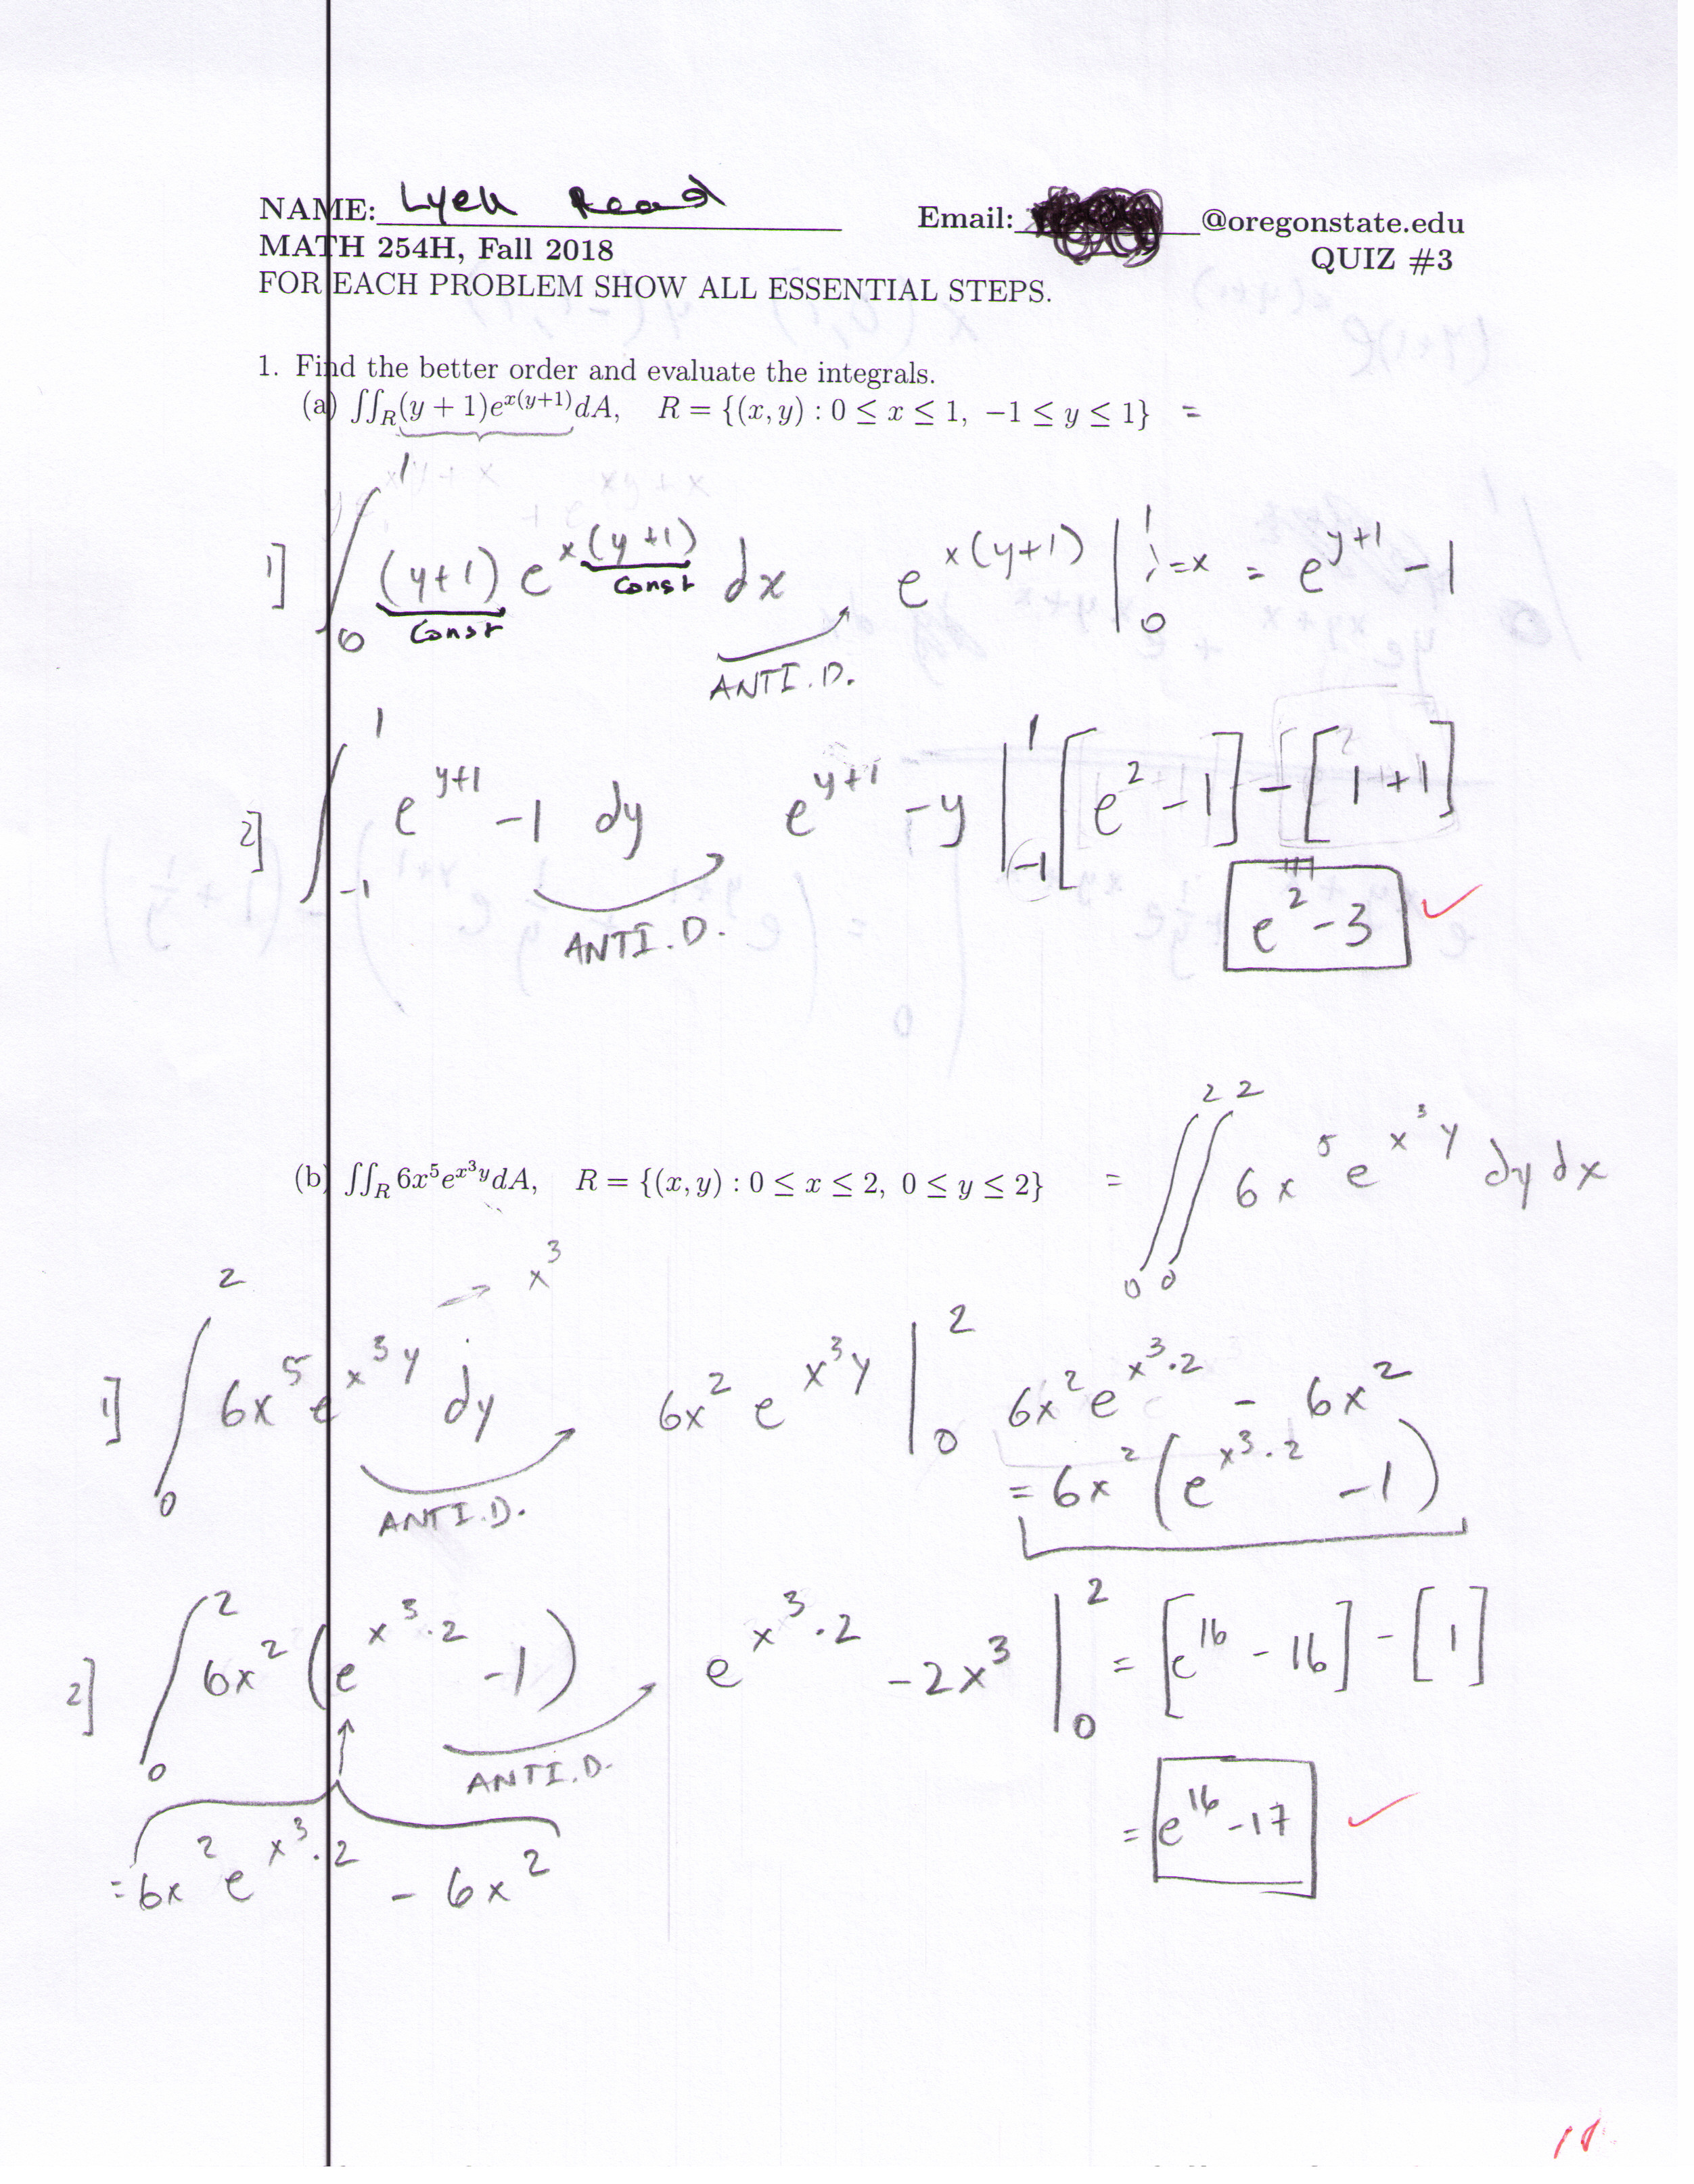 NAME: Lyell Read Email: @oregonstate.edu
MATH 254H, Fall 2018 QUIZ #3
FOR EACH PROBLEM SHOW ALL ESSENTIAL STEPS.
1. Find the better order and evaluate the integrals.
(a) ∬_R (y + 1)e^{x(y+1)} dA, R = {(x, y) : 0 ≤ x ≤ 1, −1 ≤ y ≤ 1} =
1] ∫_0^1 (y+1) e^{x(y+1)} dx e^{x(y+1)} |_0^1 ;=x = e^{y+1} -1
Const Const
ANTI.D.
2] ∫_{-1}^1 e^{y+1} -1 dy e^{y+1} -y |_{-1}^1 [e^2 -1] - [1+1]
ANTI.D.
e^2 -3 ✓
(b) ∬_R 6x^5 e^{x^3 y} dA, R = {(x, y) : 0 ≤ x ≤ 2, 0 ≤ y ≤ 2} = ∫_0^2 ∫_0^2 6x^5 e^{x^3 y} dy dx
→ x^3
1] ∫_0^2 6x^5 e^{x^3 y} dy 6x^2 e^{x^3 y} |_0^2 6x^2 e^{x^3·2} - 6x^2
= 6x^2 (e^{x^3·2} -1)
ANTI.D.
2] ∫_0^2 6x^2 (e^{x^3·2} -1) e^{x^3·2} -2x^3 |_0^2 = [e^16 - 16] - [1]
ANTI.D.
= e^16 -17 ✓
= 6x^2 e^{x^3·2} - 6x^2